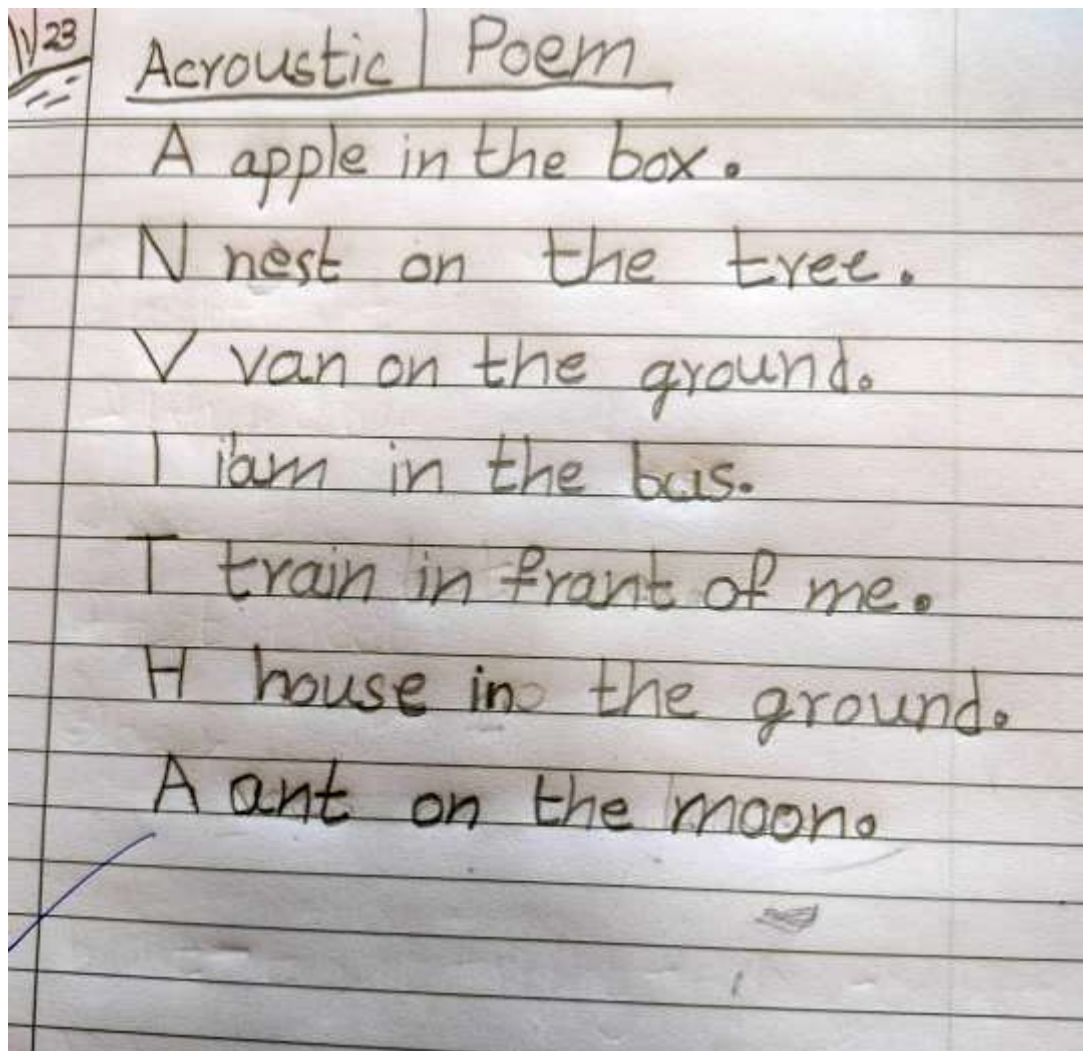 23
Acroustic Poem
A apple in the box.
N nest on the tree.
V van on the ground.
I i'am in the bus.
T train in frant of me.
H house in the ground.
A ant on the moon.